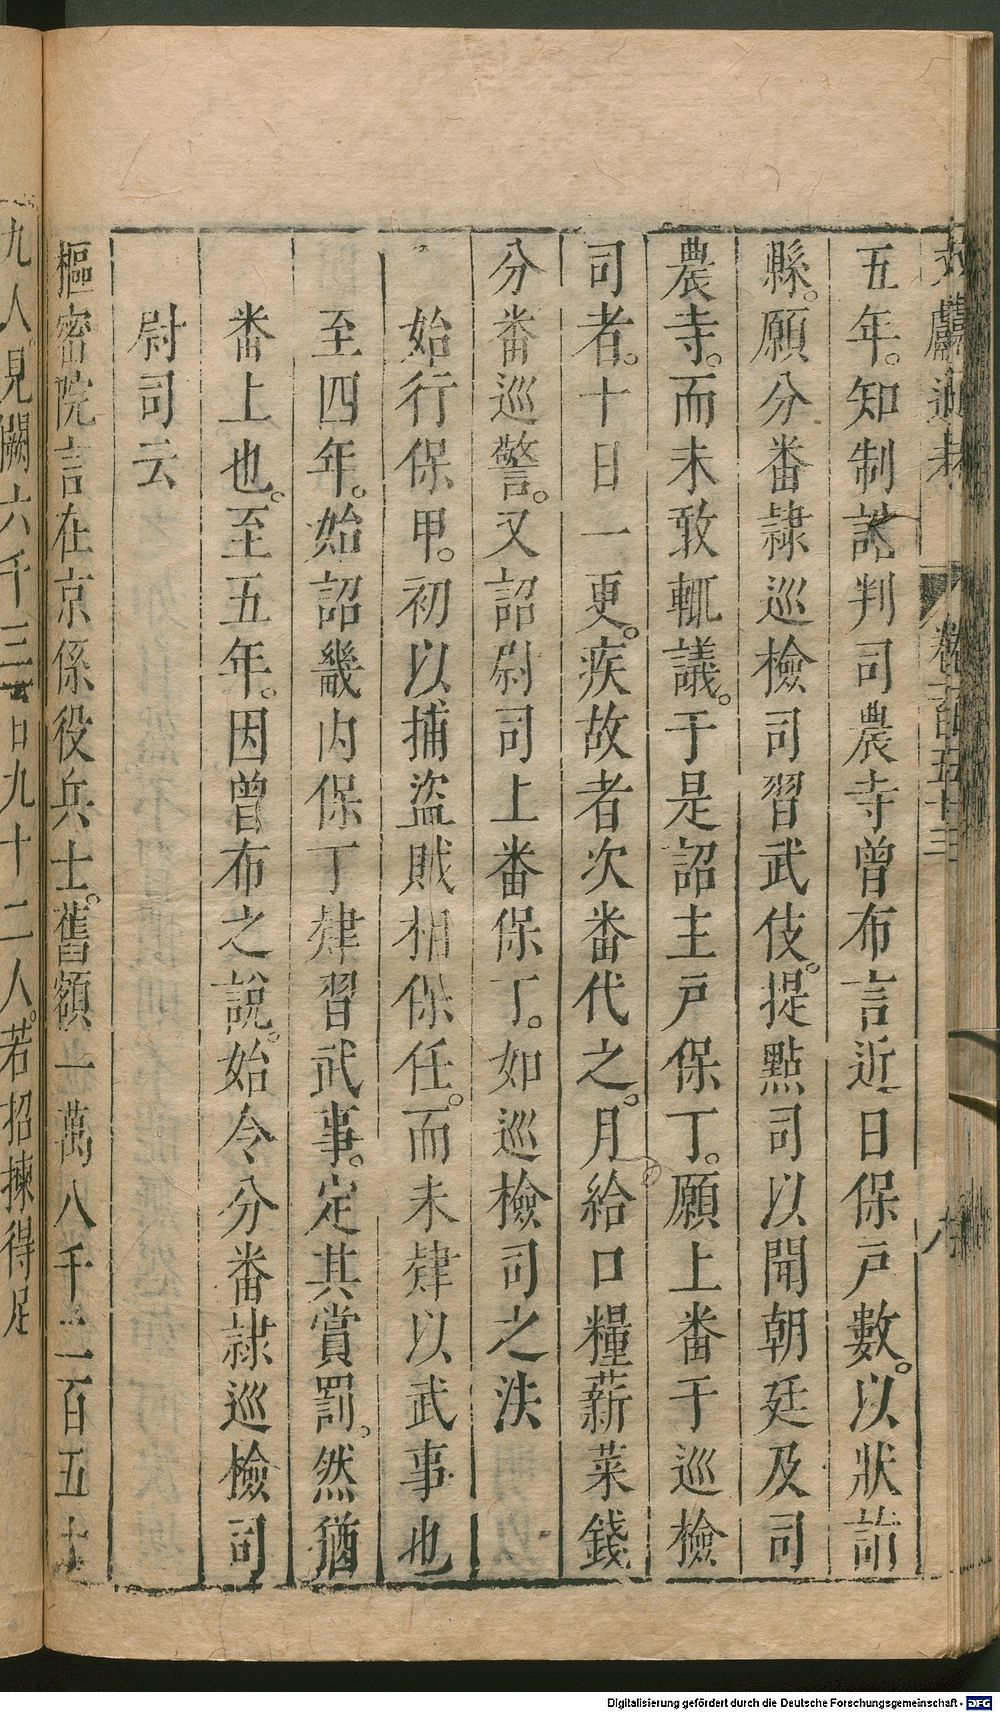 五年。知制誥判司農寺曾布言近日保戶數。以狀詣
縣。願分番隸巡檢司習武伎。提㸃司以聞朝廷及司
農寺。而未敢輒議。于是詔主戶保丁。願上番于巡檢
司者。十日一更。疾故者次番代之。月給口糧薪菜錢
分番巡警。又詔尉司上番保丁。如巡檢司之法
始行保甲。初以捕盜賊相保任。而未肄以武事也
至四年。始詔畿内保丁肄習武事。定其賞罰。然猶
番上也。至五年。因曾布之說。始令分番隸巡檢司
尉司云
樞密院言在京係役兵士。舊額一萬八千二百五十
九人。見闕六千三百九十二人。若招揀得足
卷一百五十三
Digitalisierung gefördert durch die Deutsche Forschungsgemeinschaft - DFG